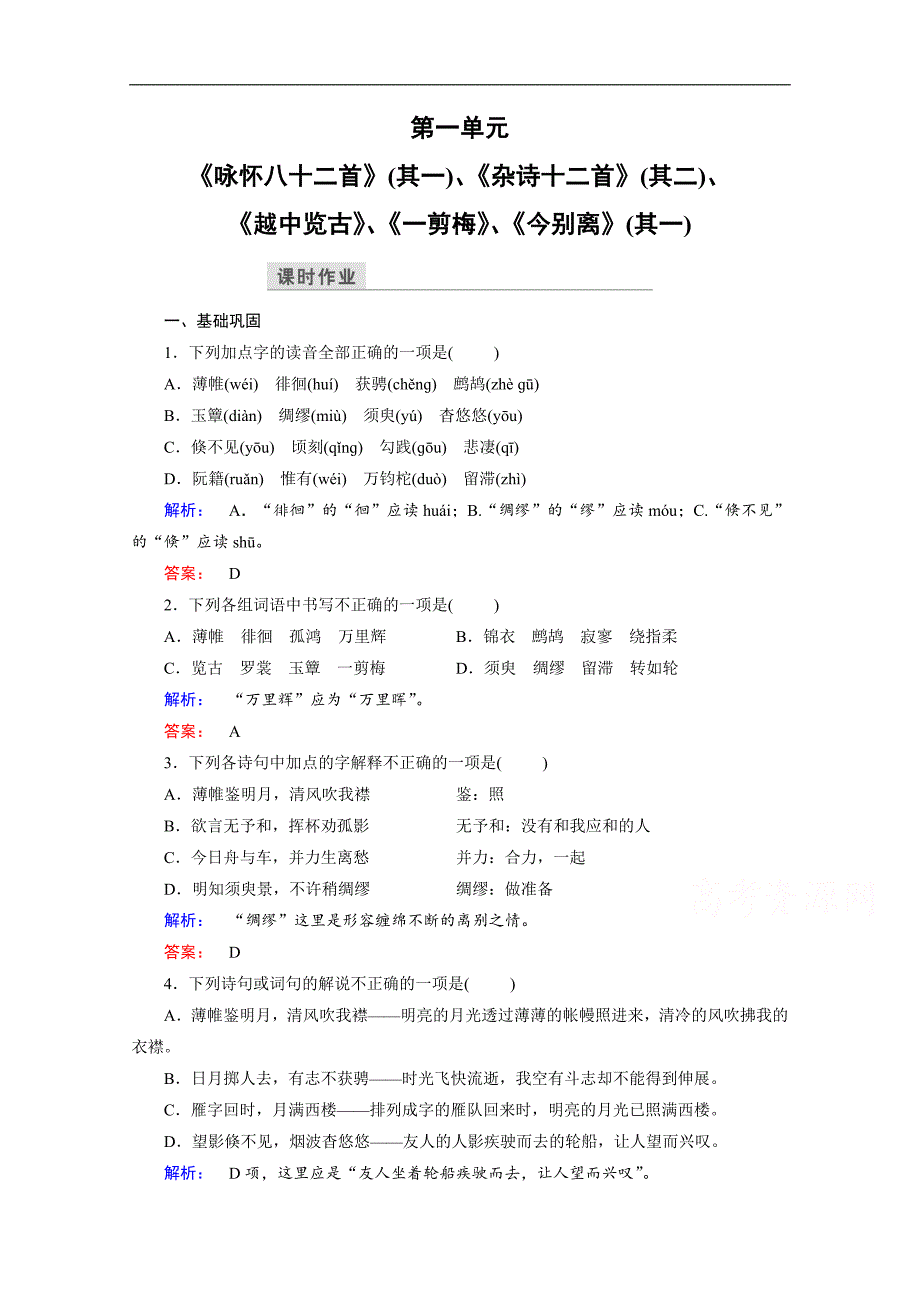 第一单元
《咏怀八十二首》(其一)、《杂诗十二首》(其二)、
《越中览古》、《一剪梅》、《今别离》(其一)
课时作业
一、基础巩固
1．下列加点字的读音全部正确的一项是(　　)
A．薄帷(wéi)　徘徊(huí)　获骋(chěng)　鹧鸪(zhè gū)
B．玉簟(diàn)　绸缪(miù)　须臾(yú)　杳悠悠(yōu)
C．倏不见(yōu)　顷刻(qǐng)　勾践(gōu)　悲凄(qī)
D．阮籍(ruǎn)　惟有(wéi)　万钧柁(duò)　留滞(zhì)
解析：　A．“徘徊”的“徊”应读 huái；B.“绸缪”的“缪”应读 móu；C.“倏不见”
的“倏”应读 shū。
答案：　D
2．下列各组词语中书写不正确的一项是(　　)
A．薄帷　徘徊　孤鸿　万里辉　　B．锦衣　鹧鸪　寂寥　绕指柔
C．览古　罗裳　玉簟　一剪梅　　D．须臾　绸缪　留滞　转如轮
解析：　“万里辉”应为“万里晖”。
答案：　A
3．下列各诗句中加点的字解释不正确的一项是(　　)
A．薄帷鉴明月，清风吹我襟　　鉴：照
B．欲言无予和，挥杯劝孤影　　无予和：没有和我应和的人
C．今日舟与车，并力生离愁　　并力：合力，一起
D．明知须臾景，不许稍绸缪　　绸缪：做准备
高考资源网
解析：　“绸缪”这里是形容缠绵不断的离别之情。
答案：　D
4．下列诗句或词句的解说不正确的一项是(　　)
A．薄帷鉴明月，清风吹我襟——明亮的月光透过薄薄的帐幔照进来，清冷的风吹拂我的
衣襟。
B．日月掷人去，有志不获骋——时光飞快流逝，我空有斗志却不能得到伸展。
C．雁字回时，月满西楼——排列成字的雁队回来时，明亮的月光已照满西楼。
D．望影倏不见，烟波杳悠悠——友人的人影疾驶而去的轮船，让人望而兴叹。
解析：　D 项，这里应是“友人坐着轮船疾驶而去，让人望而兴叹”。